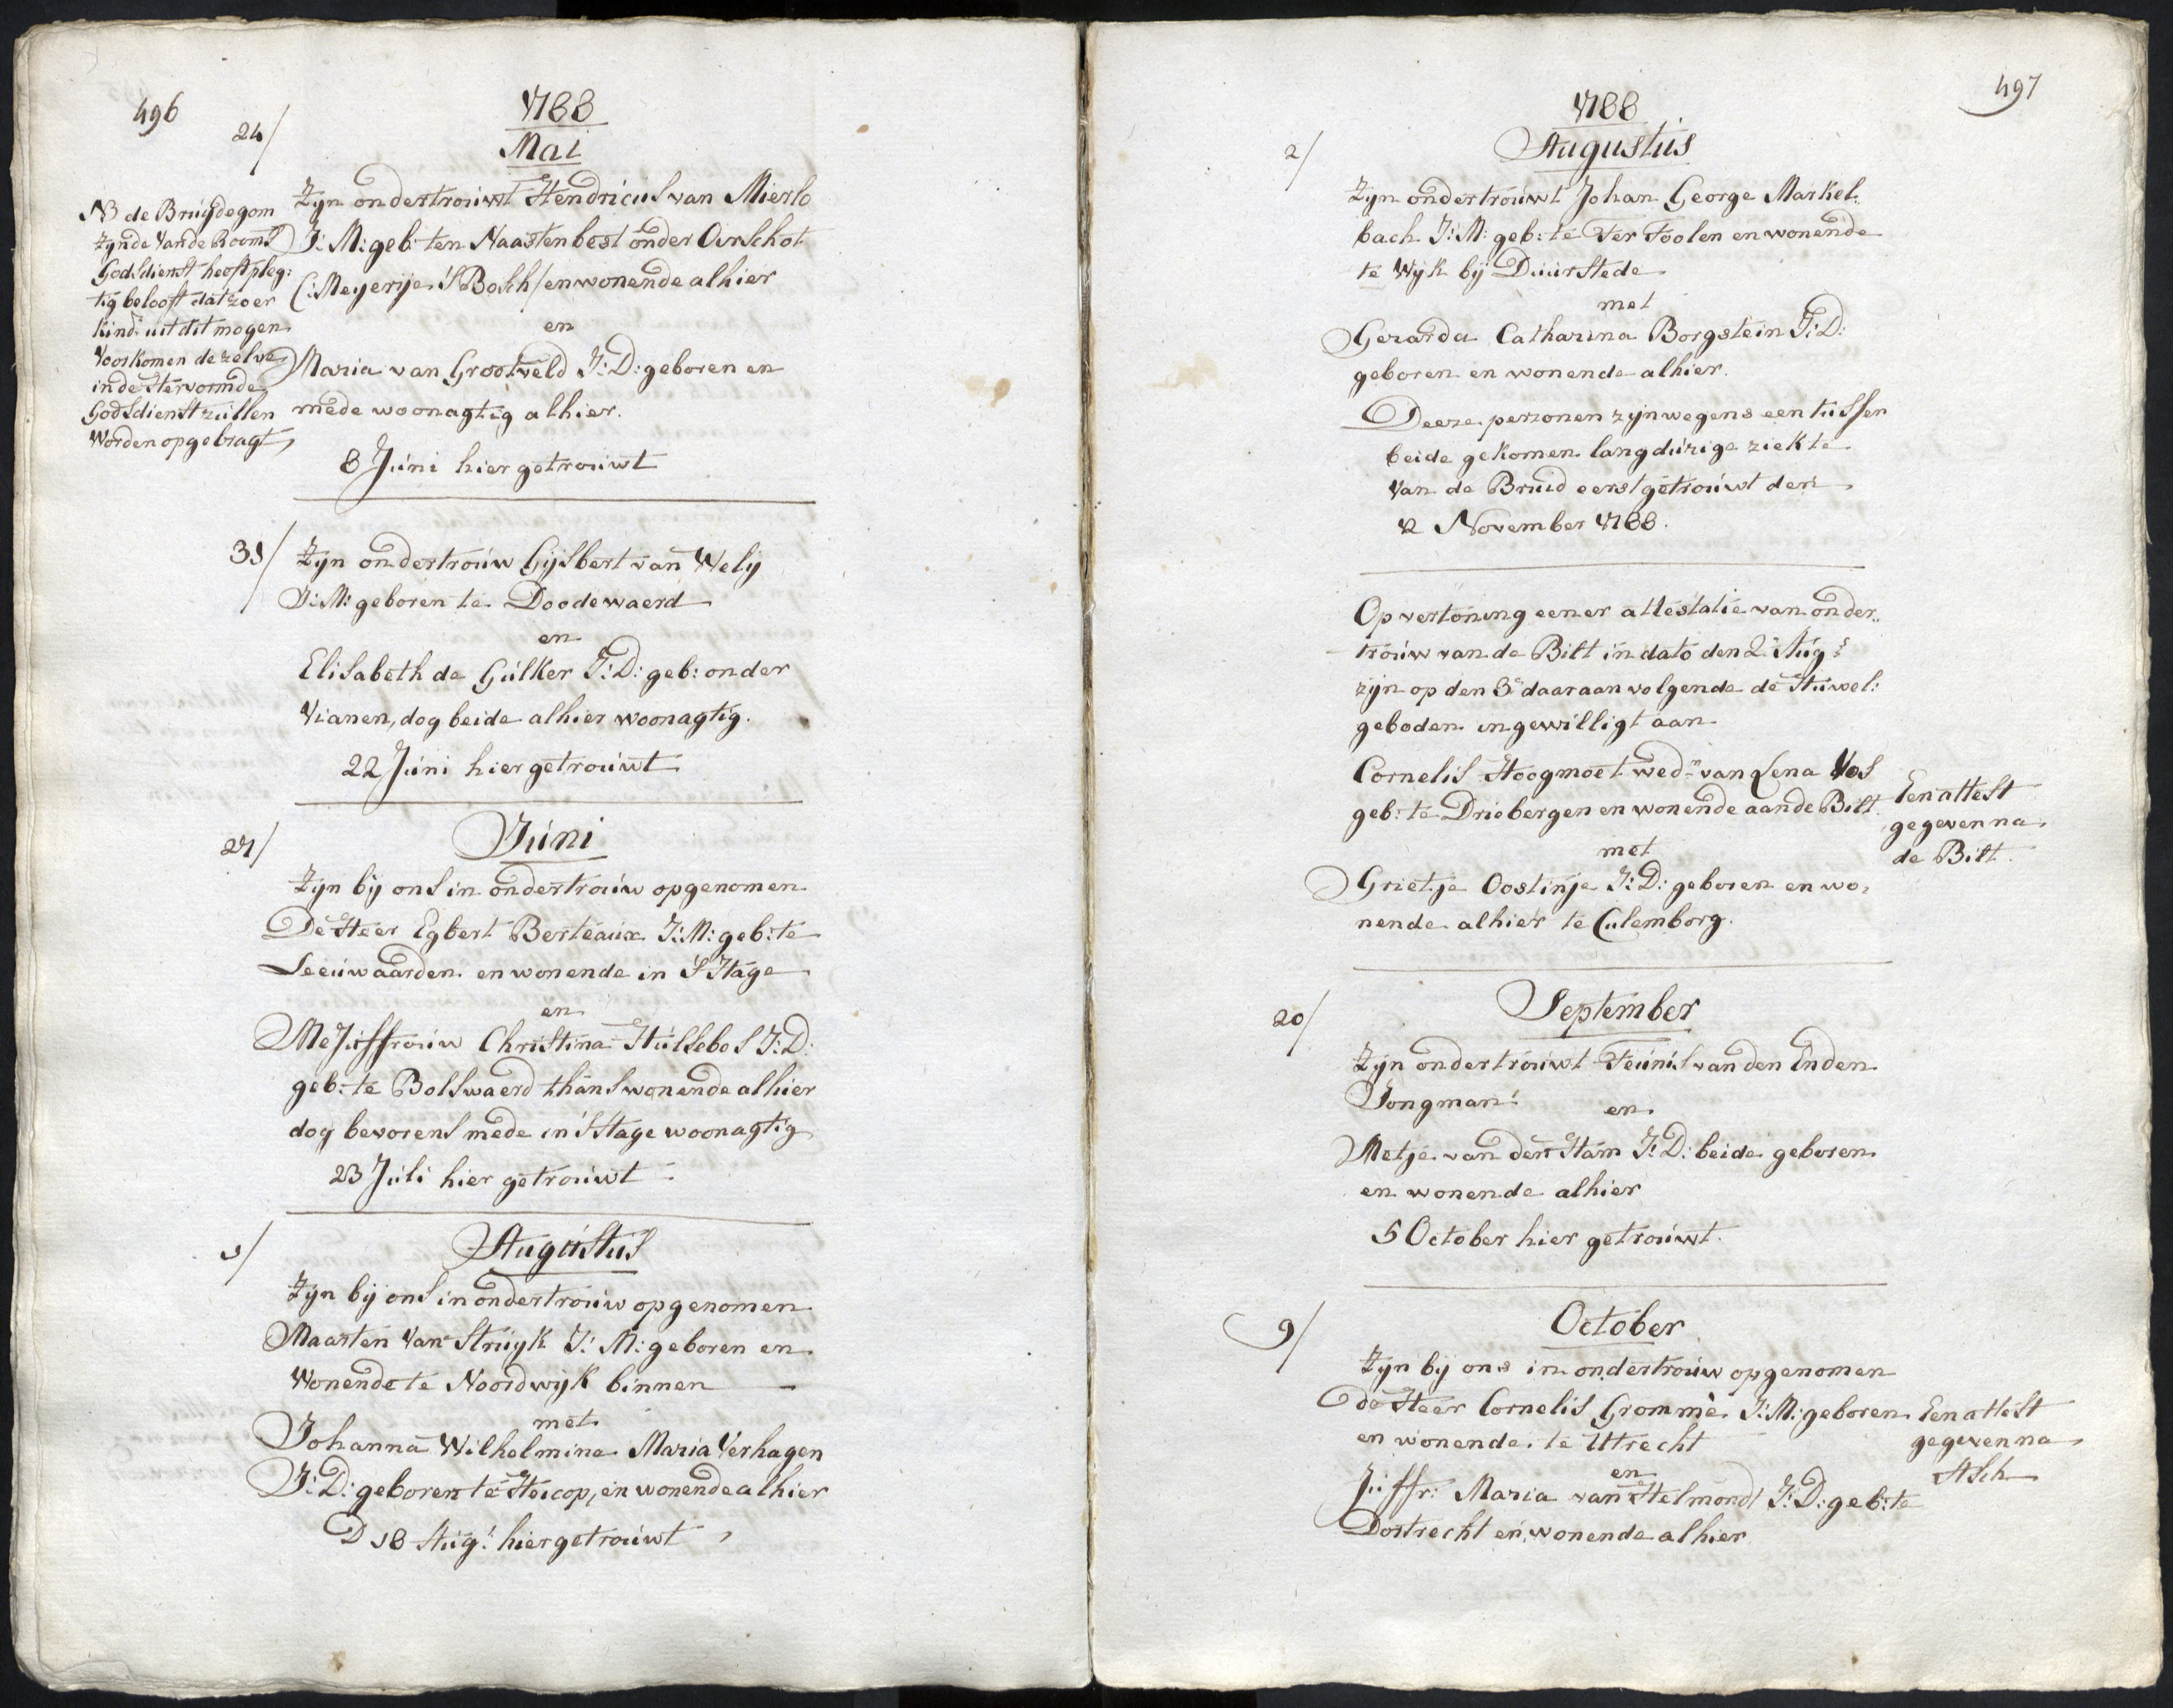 496
1788
24/
Mai
Zyn ondertrouwt Hendricus van Mierlo
J: M: geb: ten Naasten best onder Oirschot
(: Meyerije 's Bosch / en wonende alhier
en
Maria van Grootveld J: D: geboren en
mede woonagtig alhier.
8 Juni hier getrouwt
NB de Bruijdegom
zynde Van de Rooms
Godsdienst heeft pleg:
tig belooft dat zo er
kind: uit dit mogen
Voorkomen dezelve
in de Hervormde
Godsdienst zullen
Worden opgebragt
31/
Zyn ondertrouw Gijsbert van Welij
J: M: geboren te Doodewaerd
en
Elisabeth de Gulker J: D: geb: onder
Vianen, dog beide alhier woonagtig.
22 Juni hier getrouwt
27/
Juni
Zyn bij ons in ondertrouw opgenomen
De Heer Egbert Berteaux J: M: geb: te
Leeuwaarden en wonende in 's Hage
en
Mejuffrouw Christina Hulsebos J: D:
geb: te Bolswaerd thans wonende alhier
dog bevorens mede in 's Hage woonagtig
23 Juli hier getrouwt
1/
Augustus
Zyn bij ons in ondertrouw opgenomen
Maarten Van Struyk J: M: geboren en
Wonende te Noordwijk binnen
met
Johanna Wilhelmina Maria Verhagen
J: D: geboren te Heicop, en wonende alhier
D 18 Aug: hier getrouwt
497
1788
2/
Augustus
Zyn ondertrouwt Johan George Markel:
bach J: M: geb: te Ter Toolen en wonende
te Wijk bij Duurstede
met
Gerarda Catharina Borgstein J: D:
geboren en wonende alhier.
Deeze perzonen zyn wegens een tussen
beide gekomen langdurige ziekte
Van de Bruid eerst getrouwt den
12 November 1788.
Op vertoning eener attestatie van onder„
trouw van de Bilt in dato den 2 Aug:
zyn op den 3 daaraan volgende de Huwel:
geboden ingewilligt aan
Cornelis Hoogmoet wed:r van Lena Vos
geb: te Driebergen en wonende aan de Bilt
met
Grietje Oostinje J: D: geboren en wo„
nende alhier te Culemborg.
Een attest
gegeven na
de Bilt.
20/
September
Zyn ondertrouwt Teunis van den Enden
Jongman:
en
Metje van den Ham J: D: beide geboren
en wonende alhier
5 October hier getrouwt.
9/
October
Zyn bij ons in ondertrouw opgenomen
de Heer Cornelis Grommè J: M: geboren
en wonende te Utrecht
en
Juffr: Maria van Helmond J: D: geb: te
Dortrecht en wonende alhier
Een attest
gegeven na
Asch